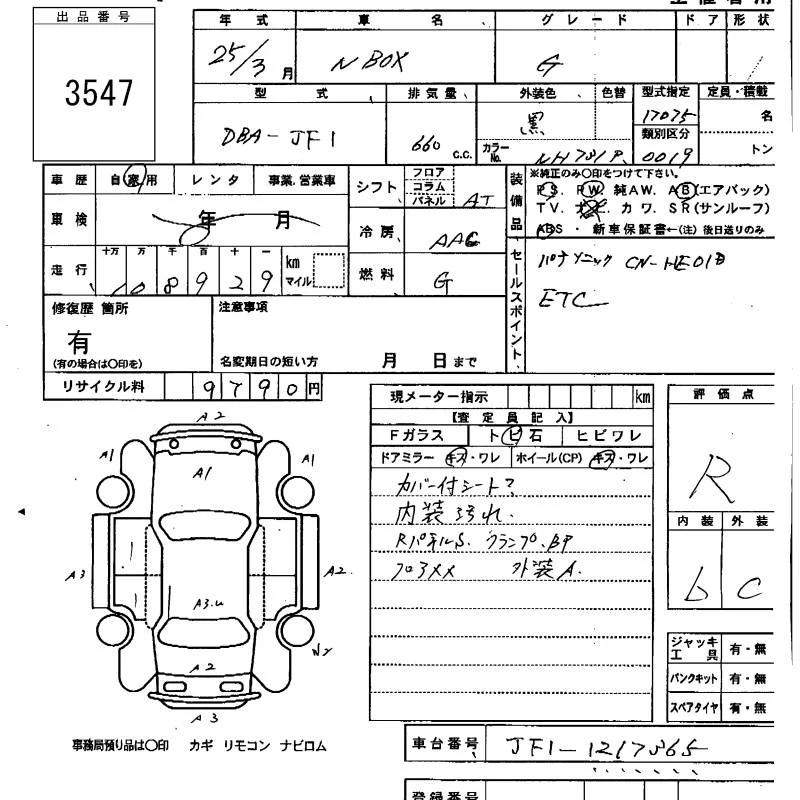 出品番号
3547
年式 車名 グレード ドア 形状
25/3月 N BOX G
型式 排気量 外装色 色替 型式指定 定員・積載
DBA-JF1 660 c.c. 黒 カラーNo. NH731P 17075 名
類別区分
0019 トン
車歴 自家用 レンタ 事業.営業車
シフト フロア コラム パネル AT
車検 年 月
冷房 AAC
走行 十万 万 千 百 十 一
108929 km マイル
燃料 G
装備品
※純正のみ〇印をつけて下さい。
P.S. P.W. 純AW. AB(エアバック)
TV. ナビ. カワ. SR(サンルーフ)
ABS ・ 新車保証書←(注) 後日送りのみ
セールスポイント
パナソニック CN-HE01D
ETC
修復歴 箇所
有
(有の場合は〇印を)
注意事項
名変期日の短い方 月 日まで
リサイクル料 9790円
現メーター指示 km
【査定員記入】
Fガラス トビ石 ヒビワレ
ドアミラー キズ・ワレ ホイール(CP) キズ・ワレ
カバー付シート?
内装汚れ.
RパネルS. クランプ.BP
フロアXX 外装A.
評価点
R
内装 外装
b C
ジャッキ 工具 有・無
パンクキット 有・無
スペアタイヤ 有・無
A2
A1 A1 A1
A3 A2
A3.u
A2 W2
A3
事務局預り品は〇印 カギ リモコン ナビロム
車台番号 JF1-1217565
登録番号